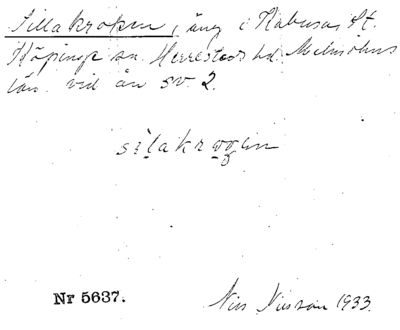 Sillakroken, äng i Kabusa St.
Köpinge sn. Herrestads hd. Malmöhus
län. vid ån sv 2.
silakrogen
Nr 5637.
Nils Nilsson 1933.